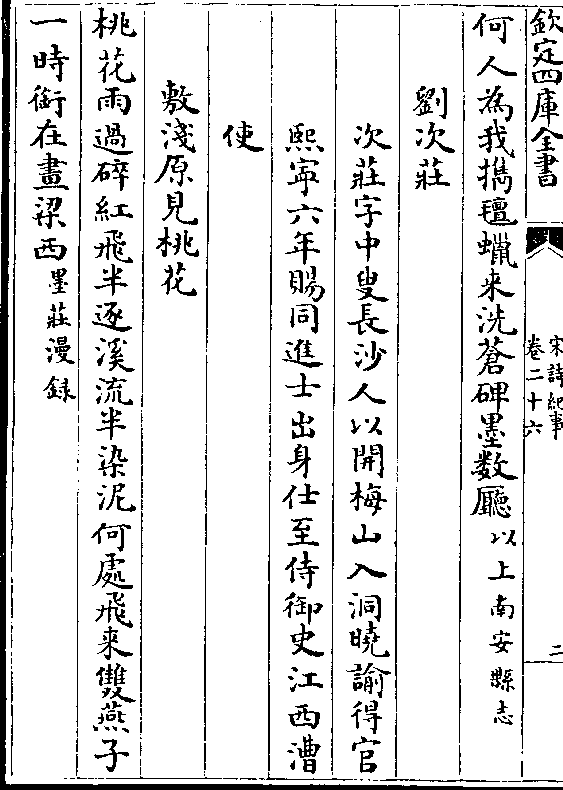 欽定四庫全書
宋詩紀事
卷二十六
二
何人為我擕氊蠟来洗蒼碑墨数廳以上南安縣志
劉次莊
次莊字中叟長沙人以開梅山入洞曉諭得官
熙寧六年賜同進士出身仕至侍御史江西漕
使
敷淺原見桃花
桃花雨過碎紅飛半逐溪流半染泥何處飛来雙燕子
一時銜在畫梁西墨莊漫録